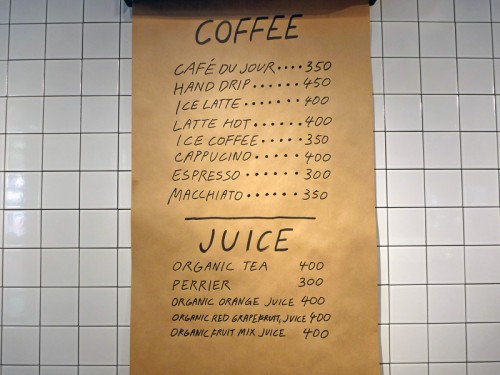 COFFEE
CAFÉ DU JOUR •••• 350
HAND DRIP •••••• 450
ICE LATTE •••••• 400
LATTE HOT •••••• 400
ICE COFFEE •••••• 350
CAPPUCINO •••••• 400
ESPRESSO •••••• 300
MACCHIATO •••••• 350
JUICE
ORGANIC TEA 400
PERRIER 300
ORGANIC ORANGE JUICE 400
ORGANIC RED GRAPEFRUIT, JUICE 400
ORGANIC FRUIT MIX JUICE 400